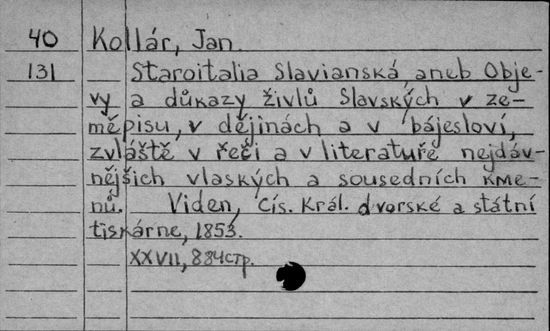 40 Kollár, Jan.
131 Staroitalia Slavianská, aneb Obje-
vy a důkazy živlů Slavských v ze-
měpisu, v dějinách a v bájesloví,
zvláště v řeči a v literatuře nejdáv-
nějších vlaských a sousedních kme-
nů. Viden, Cís. Král. dvorské a státní
tiskárne, 1853.
XXVII, 884стр.